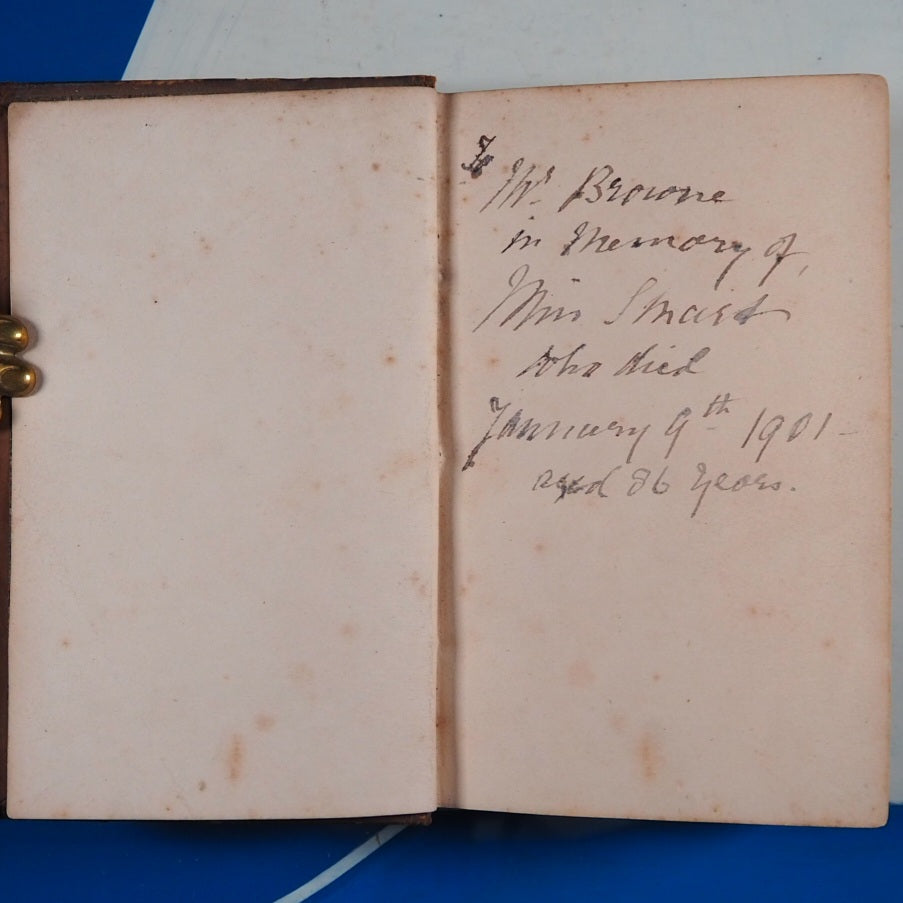 To
Mr. Browne
in Memory of,
Miss Smart
who died
January 9th 1901-
aged 86 Years.